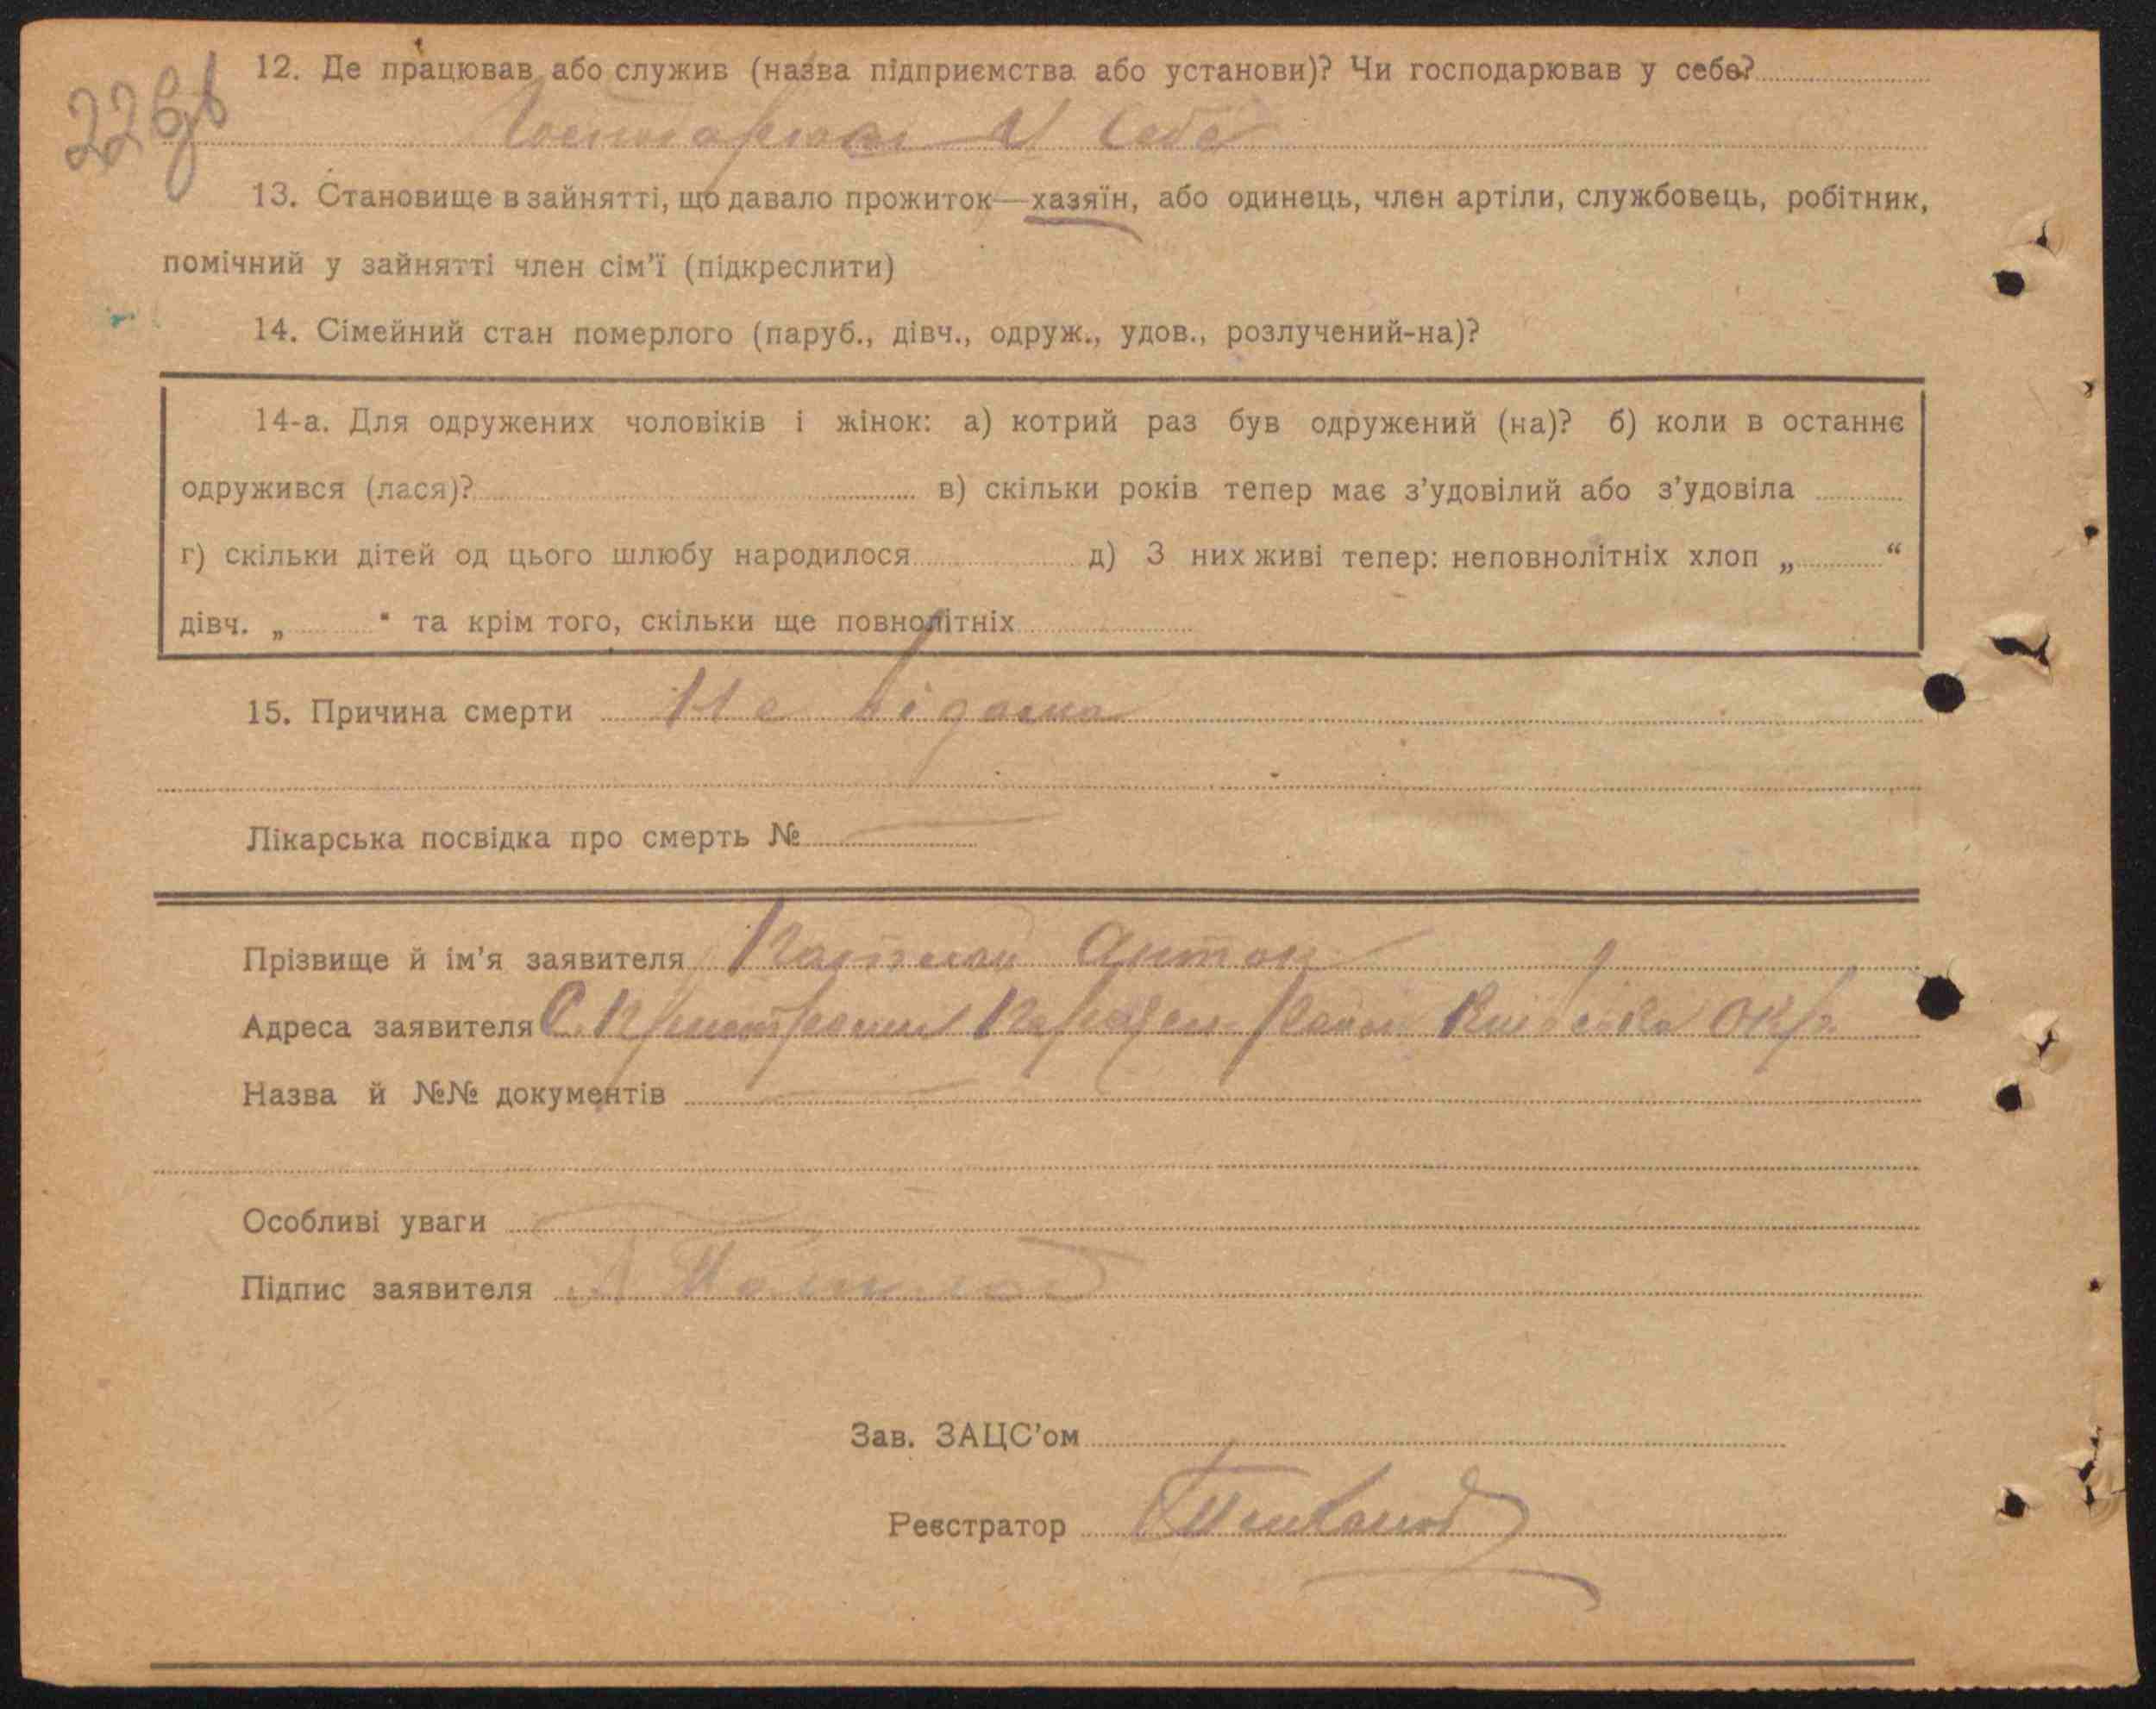 12. Де працював або служив (назва підприємства або установи)? Чи господарював у себе?
у себе
13. Становище в зайнятті, що давало прожиток—хазяїн, або одинець, член артіли, службовець, робітник,
помічний у зайнятті член сім'ї (підкреслити)
14. Сімейний стан померлого (паруб., дівч., одруж., удов., розлучений-на)?
14-а. Для одружених чоловіків і жінок: а) котрий раз був одружений (на)? б) коли в останнє
одружився (лася)? в) скільки років тепер має з'удовілий або з'удовіла
г) скільки дітей од цього шлюбу народилося д) З них живі тепер: неповнолітніх хлоп „ “
дівч. „ “ та крім того, скільки ще повнолітніх
15. Причина смерти Не відома
Лікарська посвідка про смерть №
Прізвище й ім'я заявителя Антон
Адреса заявителя С. район Київська Окр.
Назва й №№ документів
Особливі уваги
Підпис заявителя
Зав. ЗАЦС'ом
Реєстратор